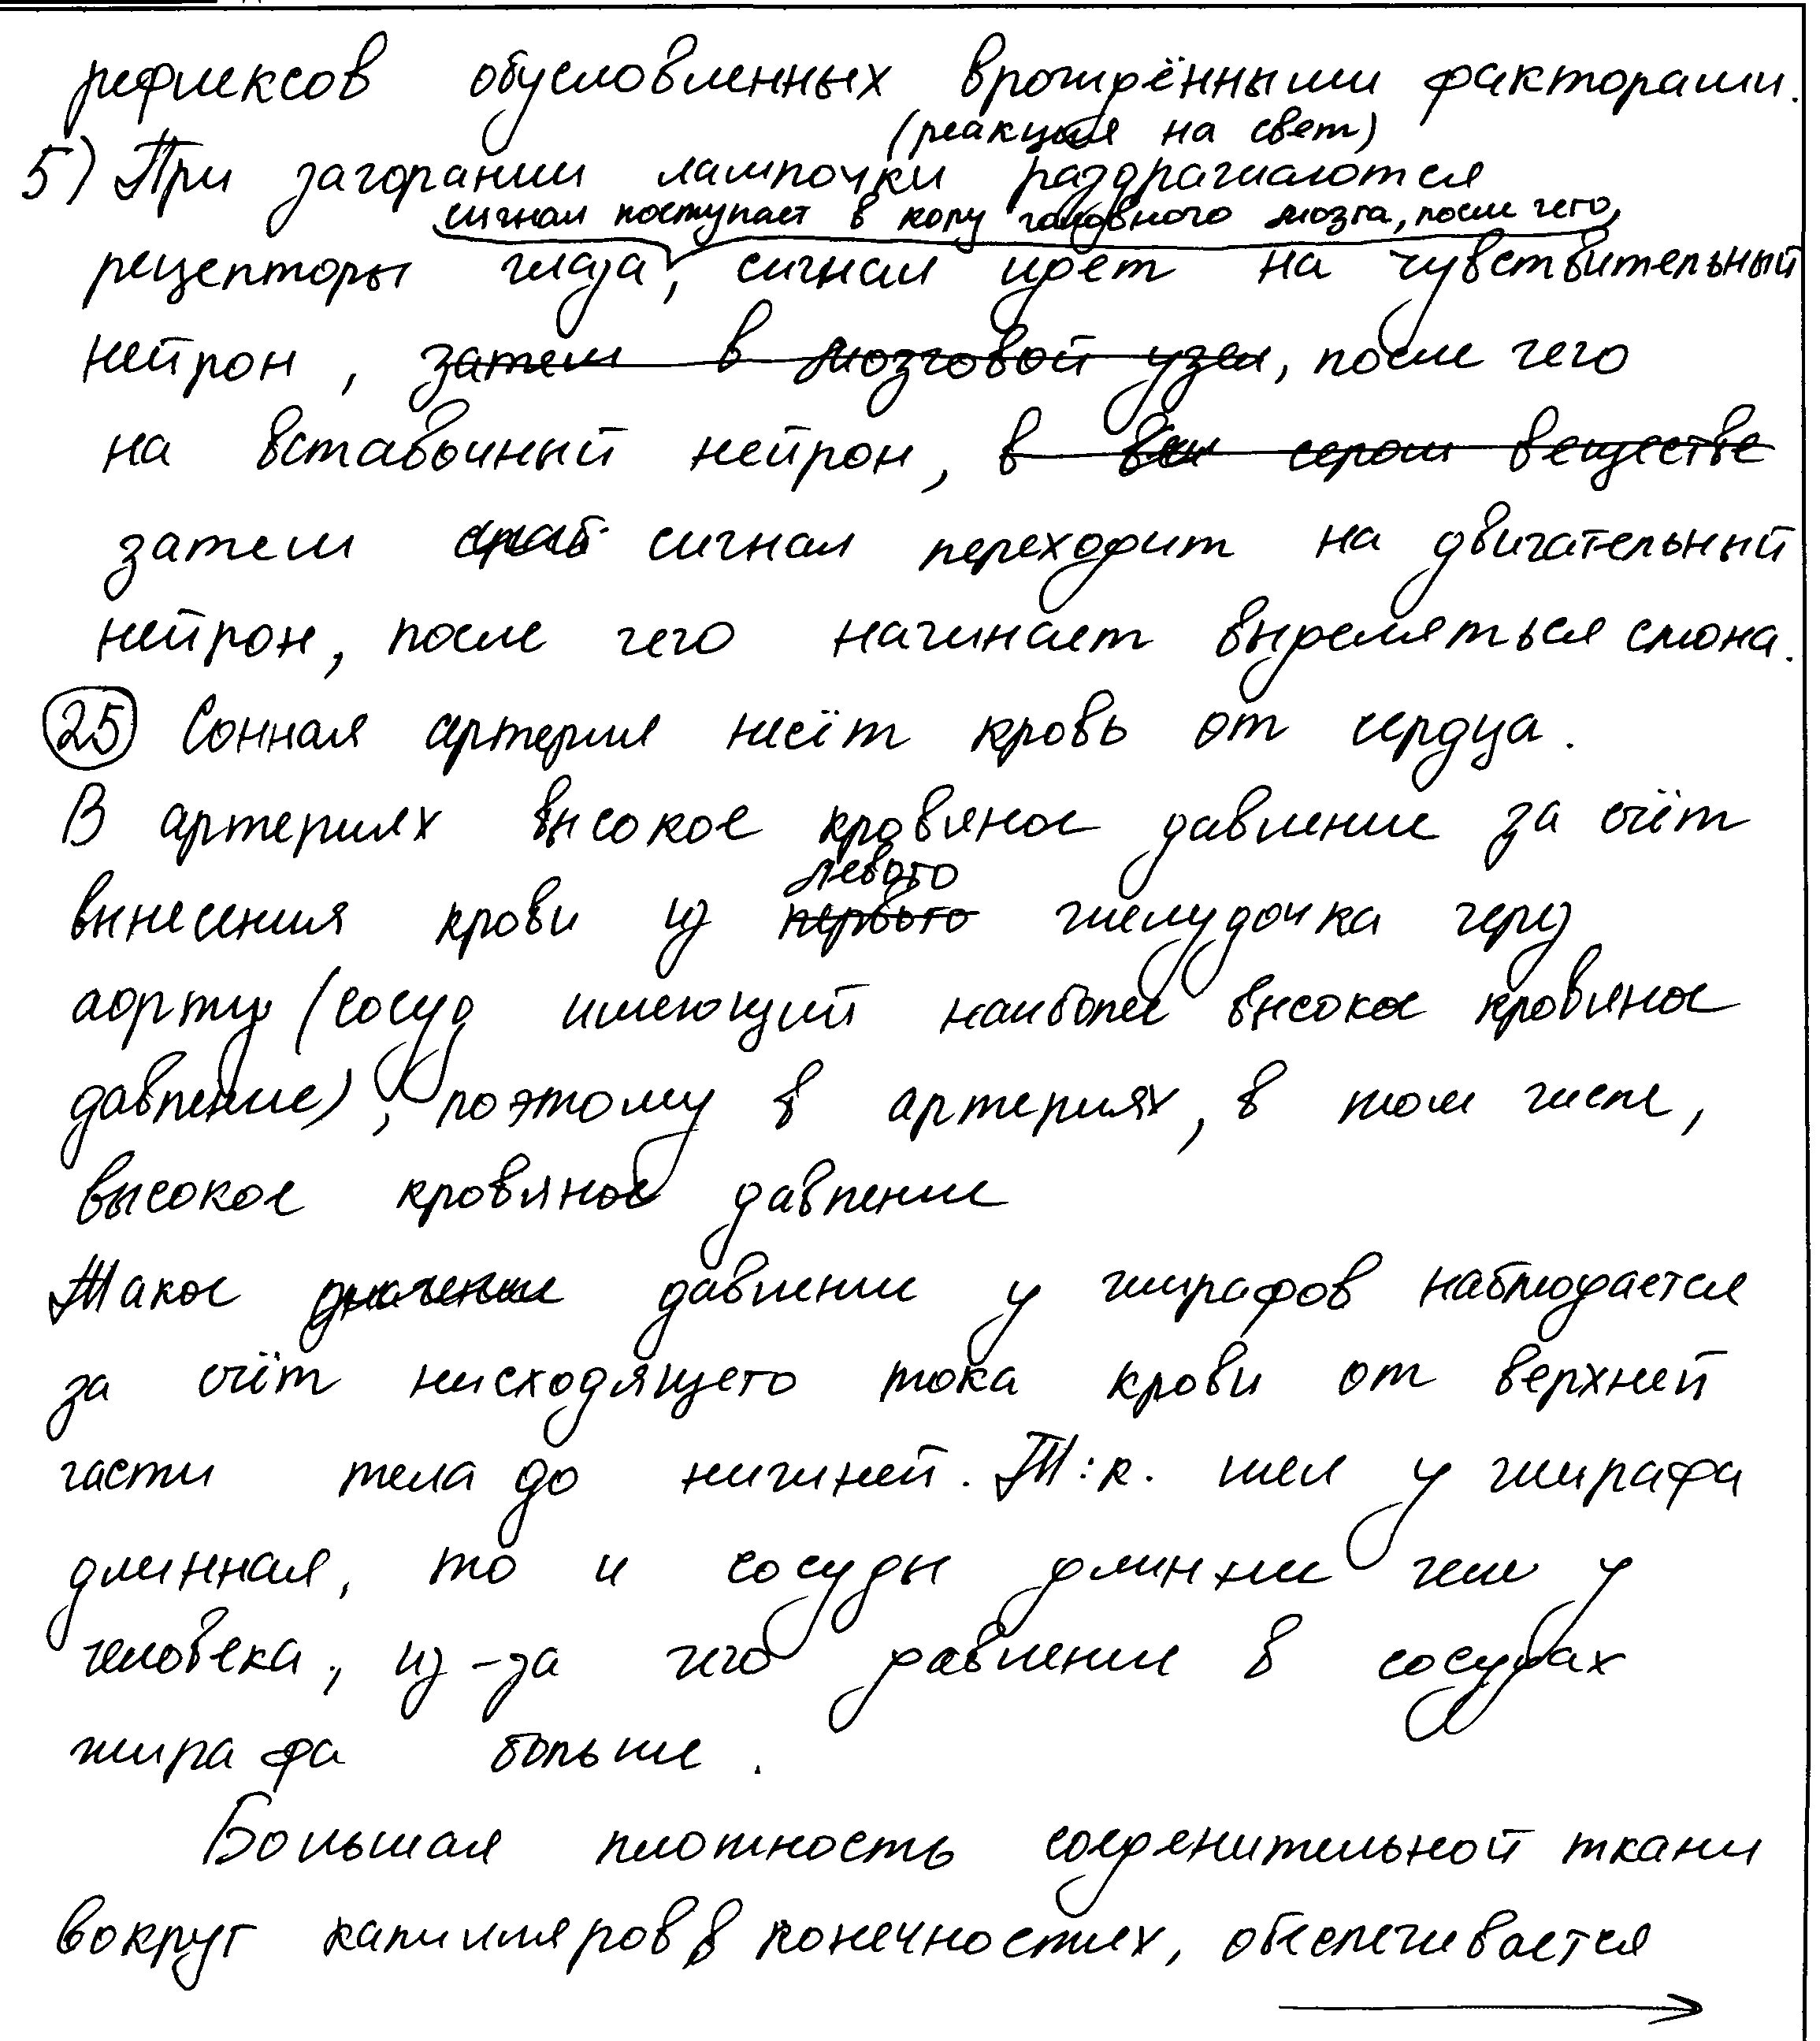 рефлексов обусловленных врождёнными факторами.
(реакция на свет)
5) При загорании лампочки раздражаются
сигнал поступает в кору головного мозга, после чего,
рецепторы глаза, сигнал идёт на чувствительный
нейрон, затем в мозговой узел, после чего
на вставочный нейрон, в сером веществе
затем сигнал переходит на двигательный
нейрон, после чего начинает выделяться слюна.
25 Сонная артерия несёт кровь от сердца.
В артериях высокое кровяное давление за счёт
левого
вынесения крови из первого желудочка через
аорту (сосуд имеющий наиболее высокое кровяное
давление), поэтому в артериях, в том числе,
высокое кровяное давление
Такое значение давление у жирафов наблюдается
за счёт нисходящего тока крови от верхней
части тела до нижней. Т.к. шея у жирафа
длинная, то и сосуды длиннее чем у
человека, из-за чего давление в сосудах
жирафа больше.
Большая плотность соеденительной ткани
вокруг капилляров в конечностях, обеспечивается